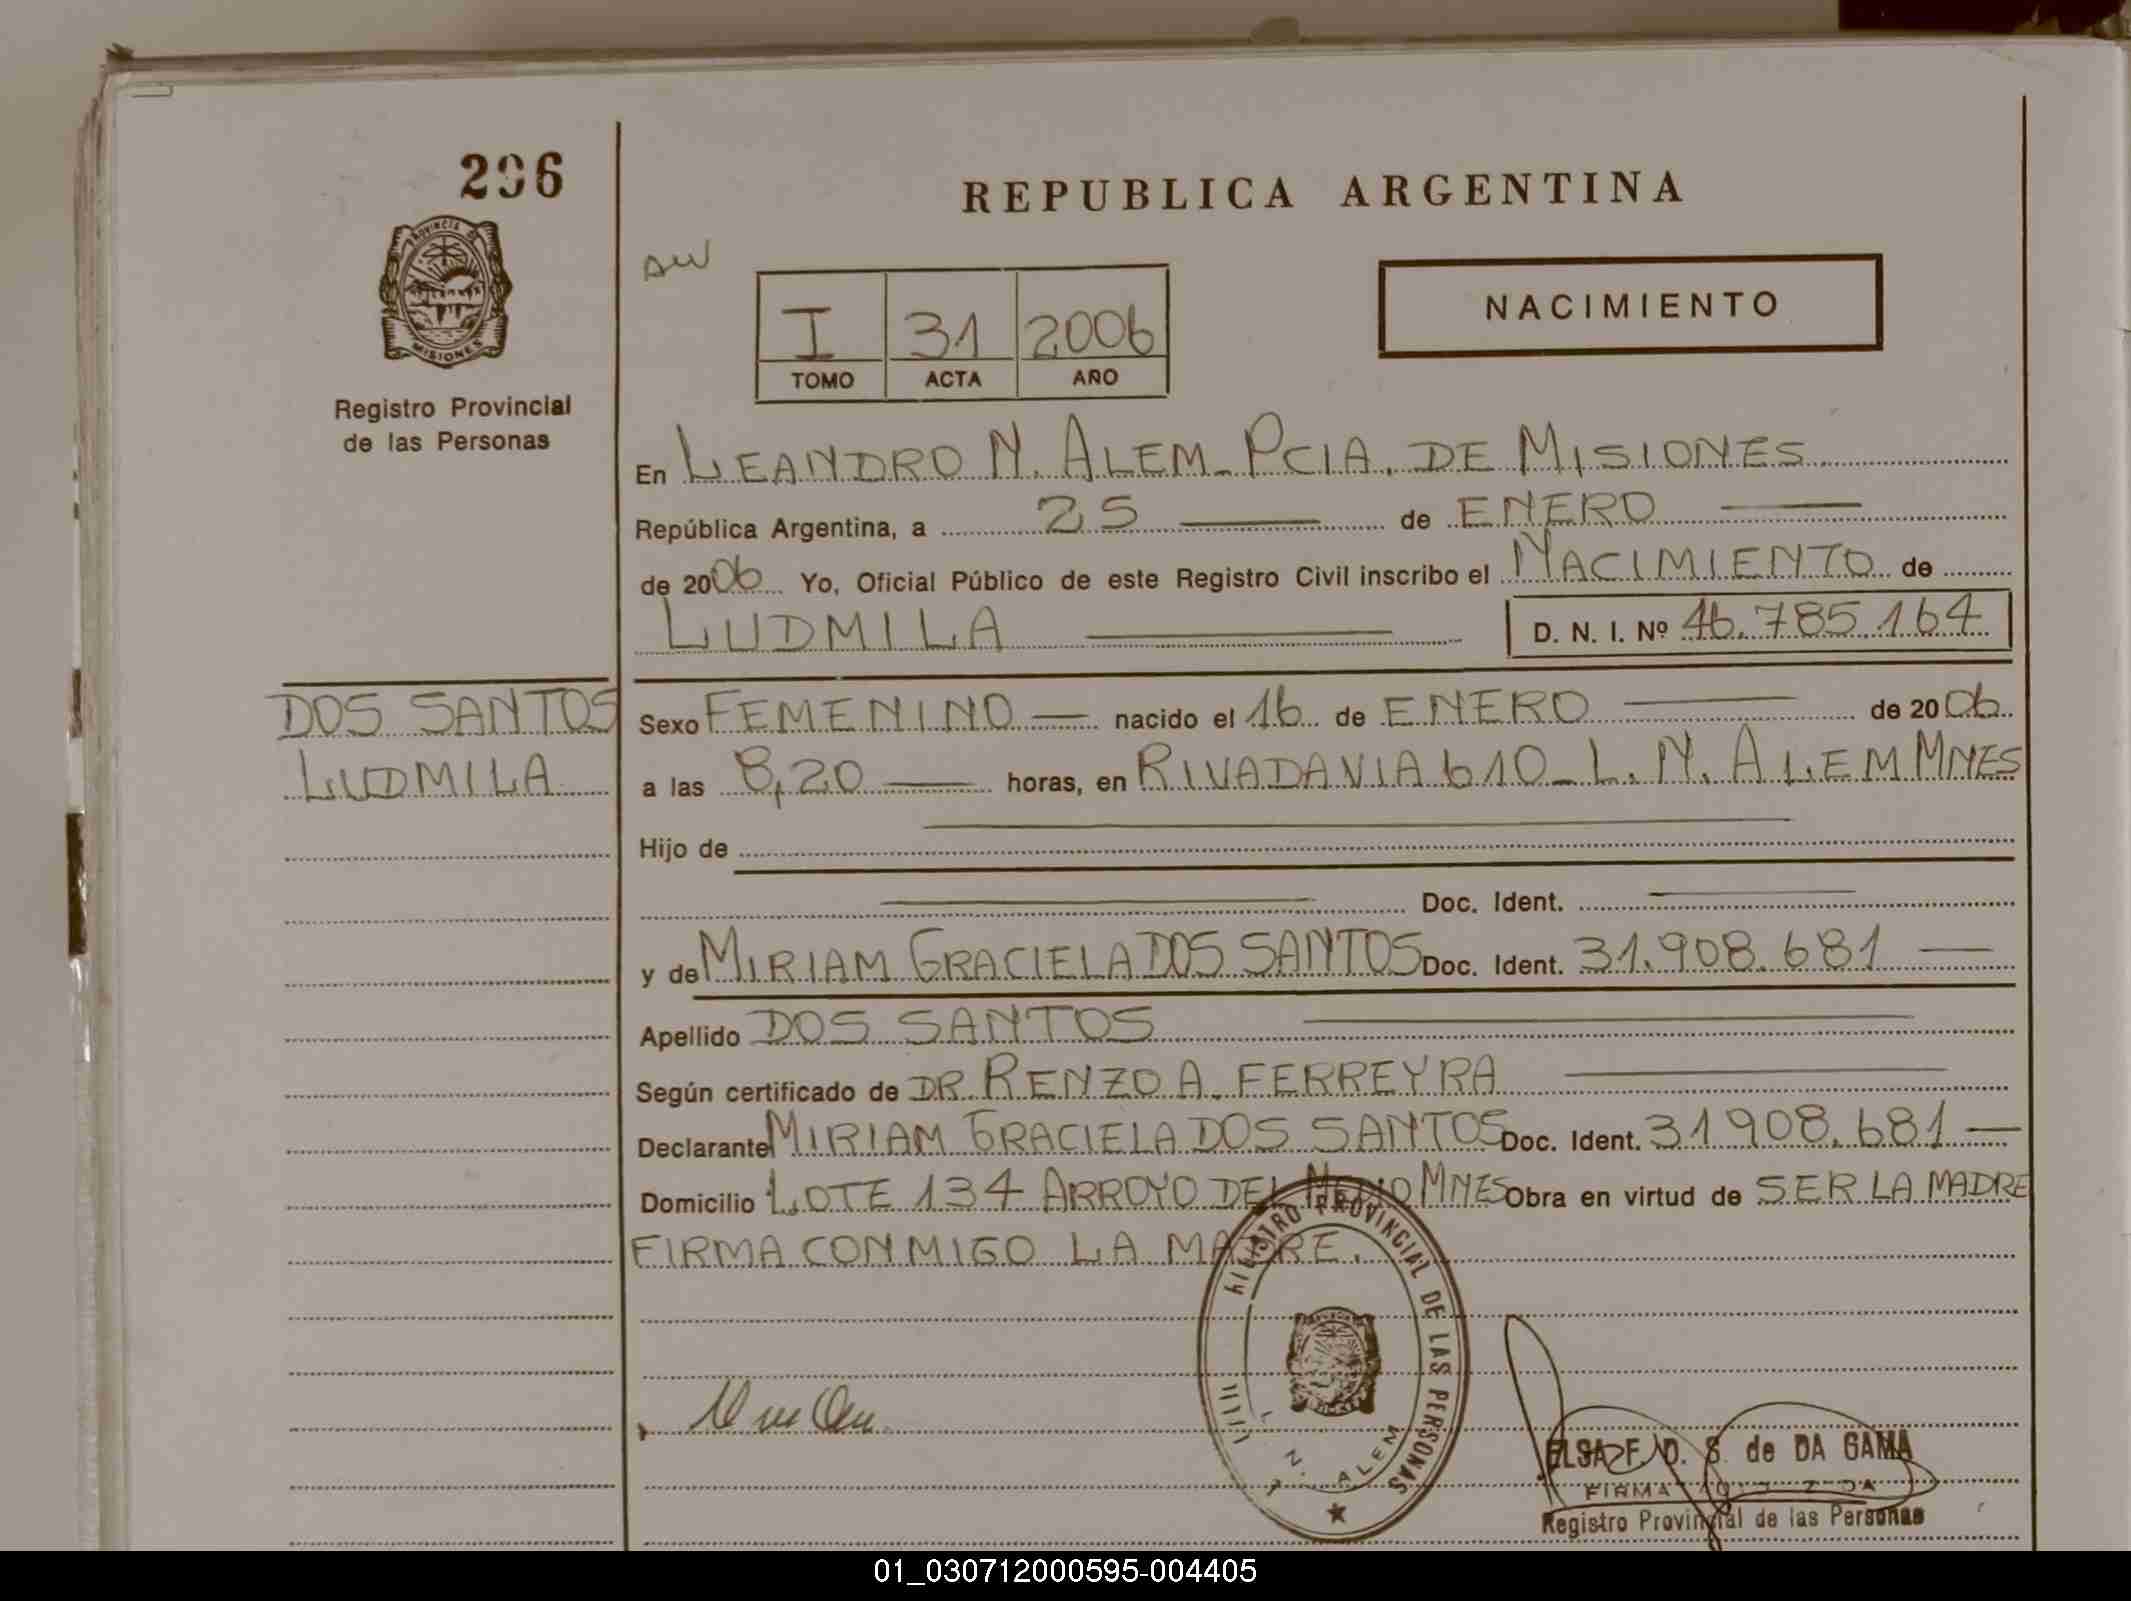 296
PROVINCIA DE
MISIONES
Registro Provincial
de las Personas
REPUBLICA ARGENTINA
NACIMIENTO
I 31 2006
TOMO ACTA AÑO
En LEANDRO N. ALEM - PCIA. DE MISIONES
República Argentina, a 25 de ENERO
de 2006 Yo, Oficial Público de este Registro Civil inscribo el NACIMIENTO de
LUDMILA D. N. I. Nº 46.785.164
DOS SANTOS
LUDMILA
Sexo FEMENINO nacido el 16 de ENERO de 2006
a las 8,20 horas, en RIVADAVIA 610 - L. N. ALEM MNES
Hijo de
Doc. Ident.
y de MIRIAM GRACIELA DOS SANTOS Doc. Ident. 31.908.681
Apellido DOS SANTOS
Según certificado de DR. RENZO A. FERREYRA
Declarante MIRIAM GRACIELA DOS SANTOS Doc. Ident. 31908.681
Domicilio LOTE 134 ARROYO DEL MEDIO MNES Obra en virtud de SER LA MADRE
FIRMA CONMIGO LA MADRE.
REGISTRO PROVINCIAL DE LAS PERSONAS
L. N. ALEM
ELSA F. D. S. de DA GAMA
FIRMA AUTORIZADA
Registro Provincial de las Personas
01_030712000595-004405